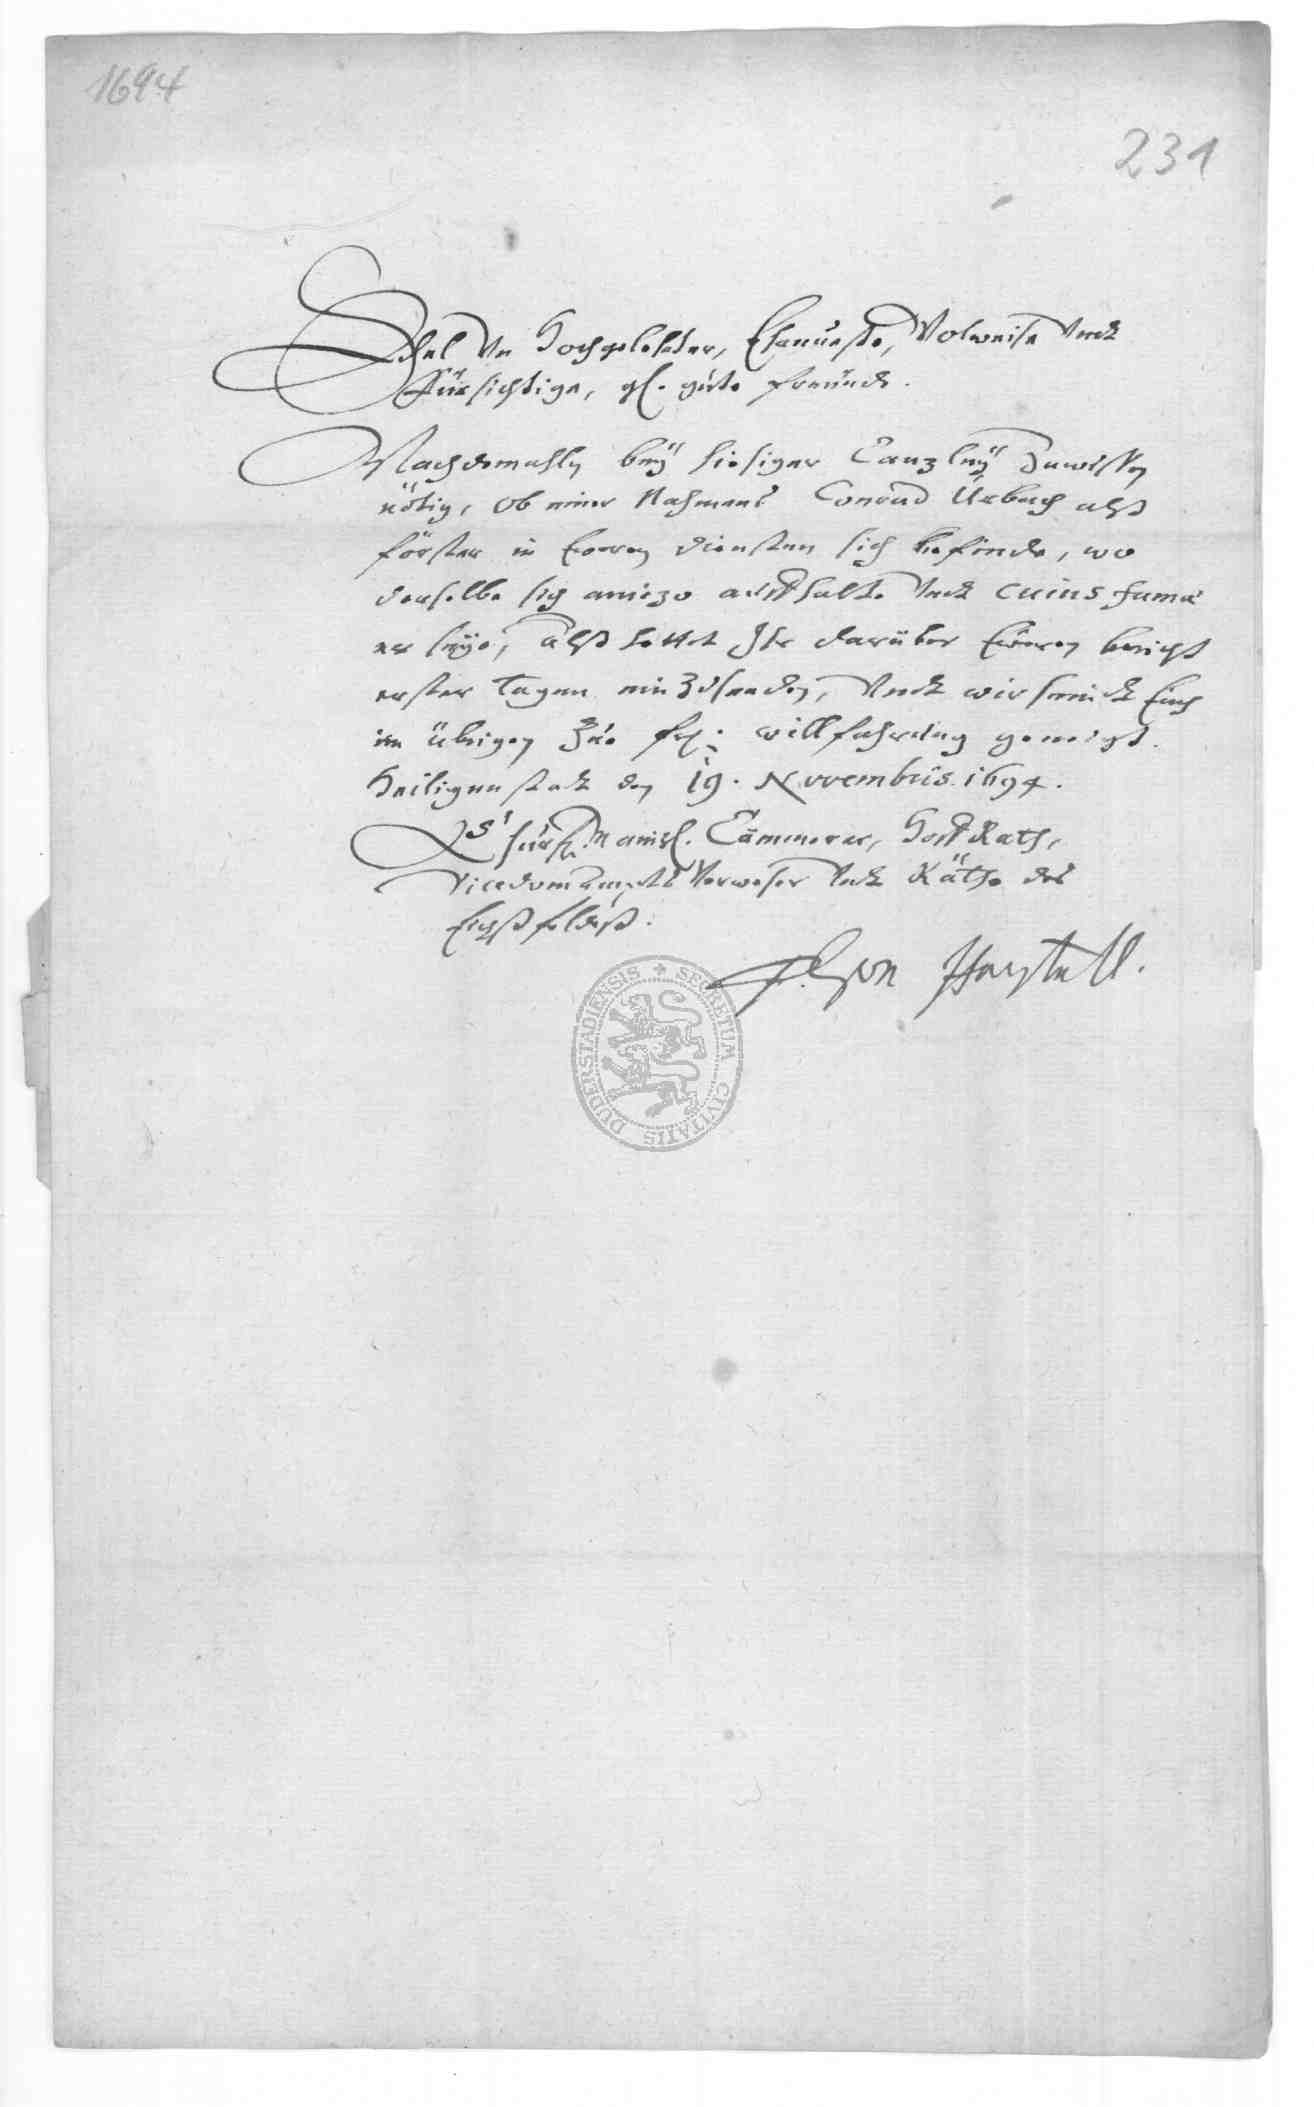 1694
231
Edel Vn Hochgelehrter, Ehrnueste, Wolweise Vndt
Fürsichtige, gh. gute freunde.
Nachdemahln bey hiesiger Canzley Zuwissen
nötig, ob einer Nahmens Conrad Urbach alß
förster in Eweren diensten sich befinde, wo
derselbe sich aniezo auffhalte Vndt cuius famæ
er seye, alß hettet Ihr darüber Eweren bericht
erster Tagen einZusenden, Vndt wir seindt Euch
im übrigen Zue frl: willfahrung geneigt.
Heiligenstadt den 19. Novembris 1694.
Churfl. Mainzl. Cämmerer, Hoff Rath,
Vicedomampts Verweser Vndt Räthe des
Eichßfeldeß.
von Harstall.
SECRETUM CIVITATIS DUDERSTADIENSIS